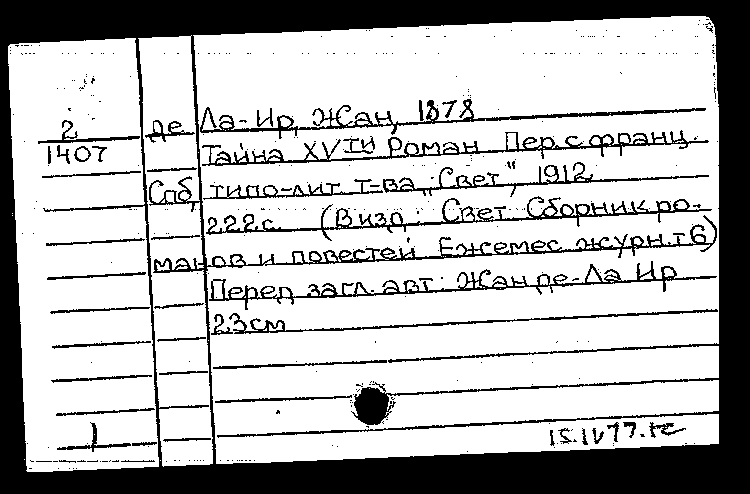 2 де Ла-Ир, Жан, 1878
1407 Тайна XVIII Роман Пер. с франц.
Спб, типо-лит. т-ва „Свет", 1912
222с. (В изд: Свет Сборник ро-
манов и повестей Ежемес журн. т 6)
Перед загл. авт: Жан де-Ла Ир
23 см
1
15.IV 77.